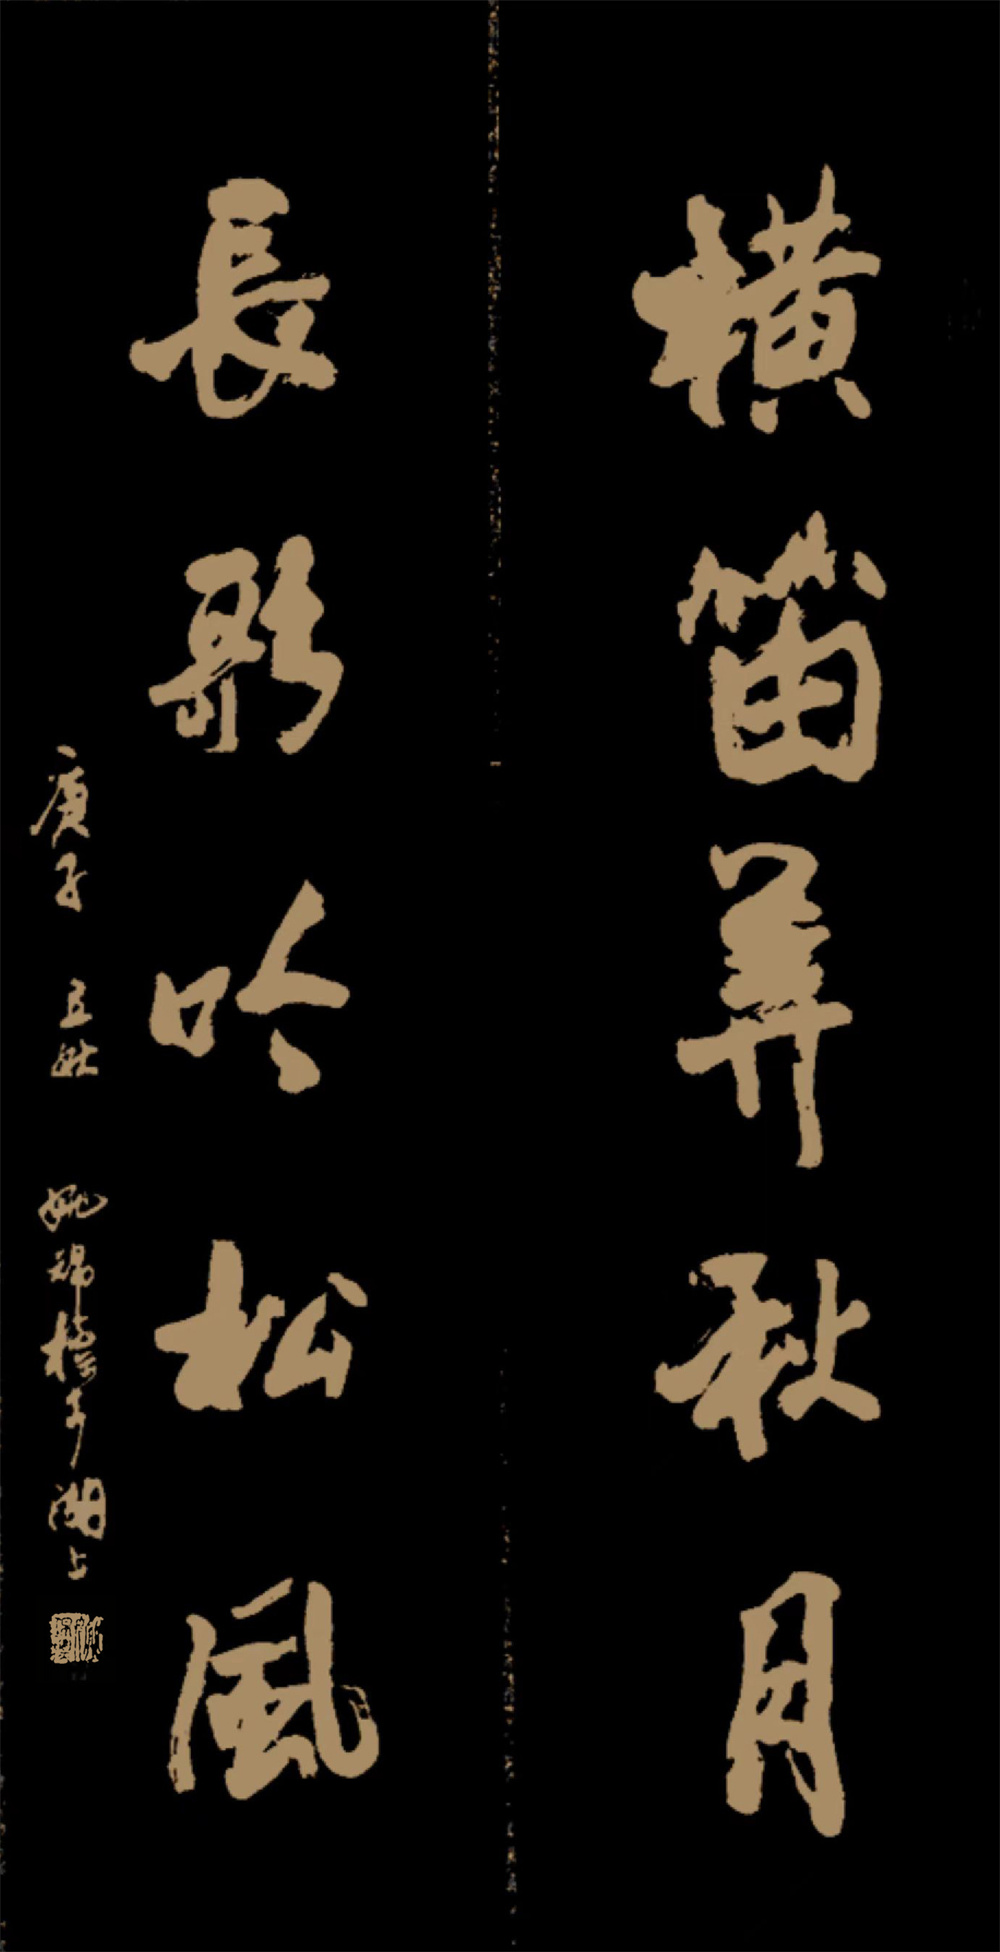 橫笛弄秋月
長歌吟松風
庚子 立秋 姚錫桂書於湖上